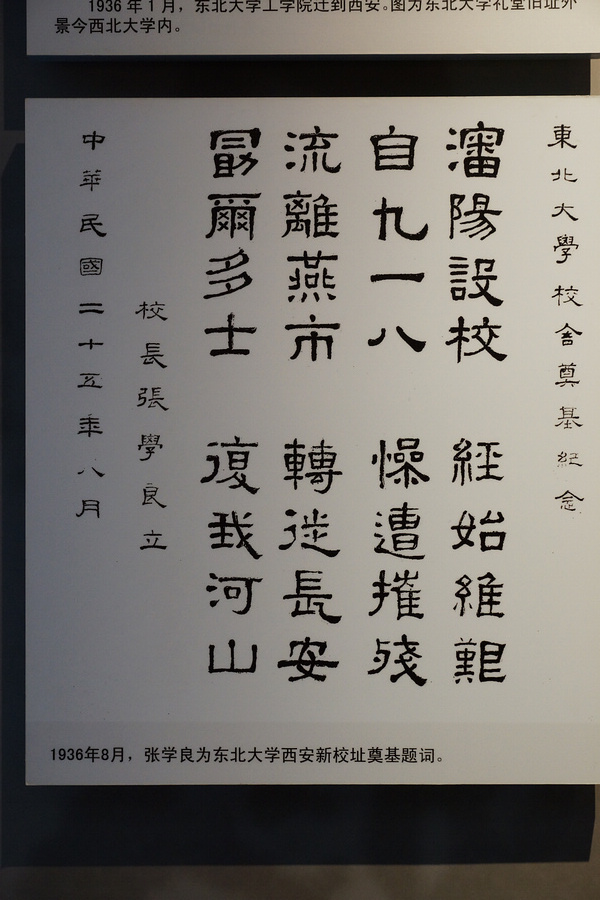 1936 年 1 月，东北大学工学院迁到西安。图为东北大学礼堂旧址外
景今西北大学内。
東北大學校舍奠基紀念
瀋陽設校 經始維艱
自九一八 懆遭摧殘
流離燕市 轉徙長安
勗爾多士 復我河山
校長張學良立
中華民國二十五年八月
1936年8月，张学良为东北大学西安新校址奠基题词。